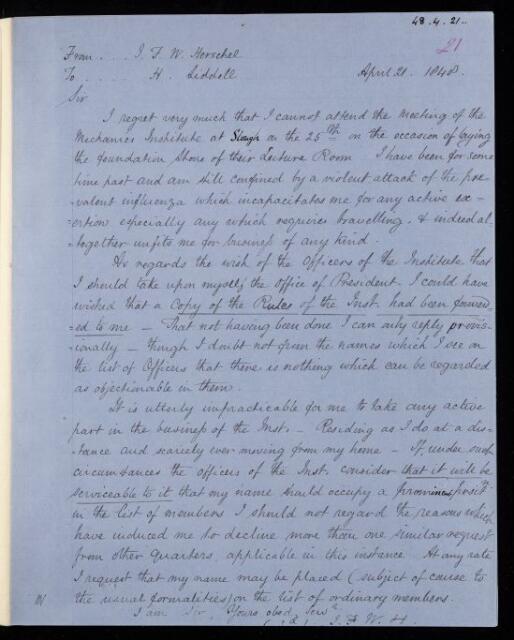 48.4.21.
21
From .... J. F. W. Herschel
To ..... H. Liddell April 21. 1848.
Sir
I regret very much that I cannot attend the Meeting of the
Mechanics Institute at Slough on the 25th on the occasion of laying
the foundation Stone of their Lecture Room I have been for some
time past and am still confined by a violent attack of the pre
-valent influenza which incapacitates me for any active ex-
-ertion especially any which requires travelling. & indeed al-
-together unfits me for business of any kind.
As regards the wish of the Officers of the Institute that
I should take upon myself the office of President I could have
wished that a Copy of the Rules of the Inst. had been forward-
-ed to me – That not having been done I can only reply provis-
-ionally – though I doubt not from the names which I see on
the list of Officers that there is nothing which can be regarded
as objectionable in them.
It is utterly impracticable for me to take any active
part in the business of the Inst. – Residing as I do at a dis-
-tance and scarcely ever moving from my home – If under such
circumstances the officers of the Inst. consider that it will be
serviceable to it that my name should occupy a prominent positn
in the list of members I should not regard the reasons which
have induced me to decline more than one similar request
from other quarters, applicable in this instance. At any rate
I request that my name may be placed (subject of course to
the usual formalities) on the list of ordinary members.
I am Sir Yours obedt Servt
J. F. W. H.